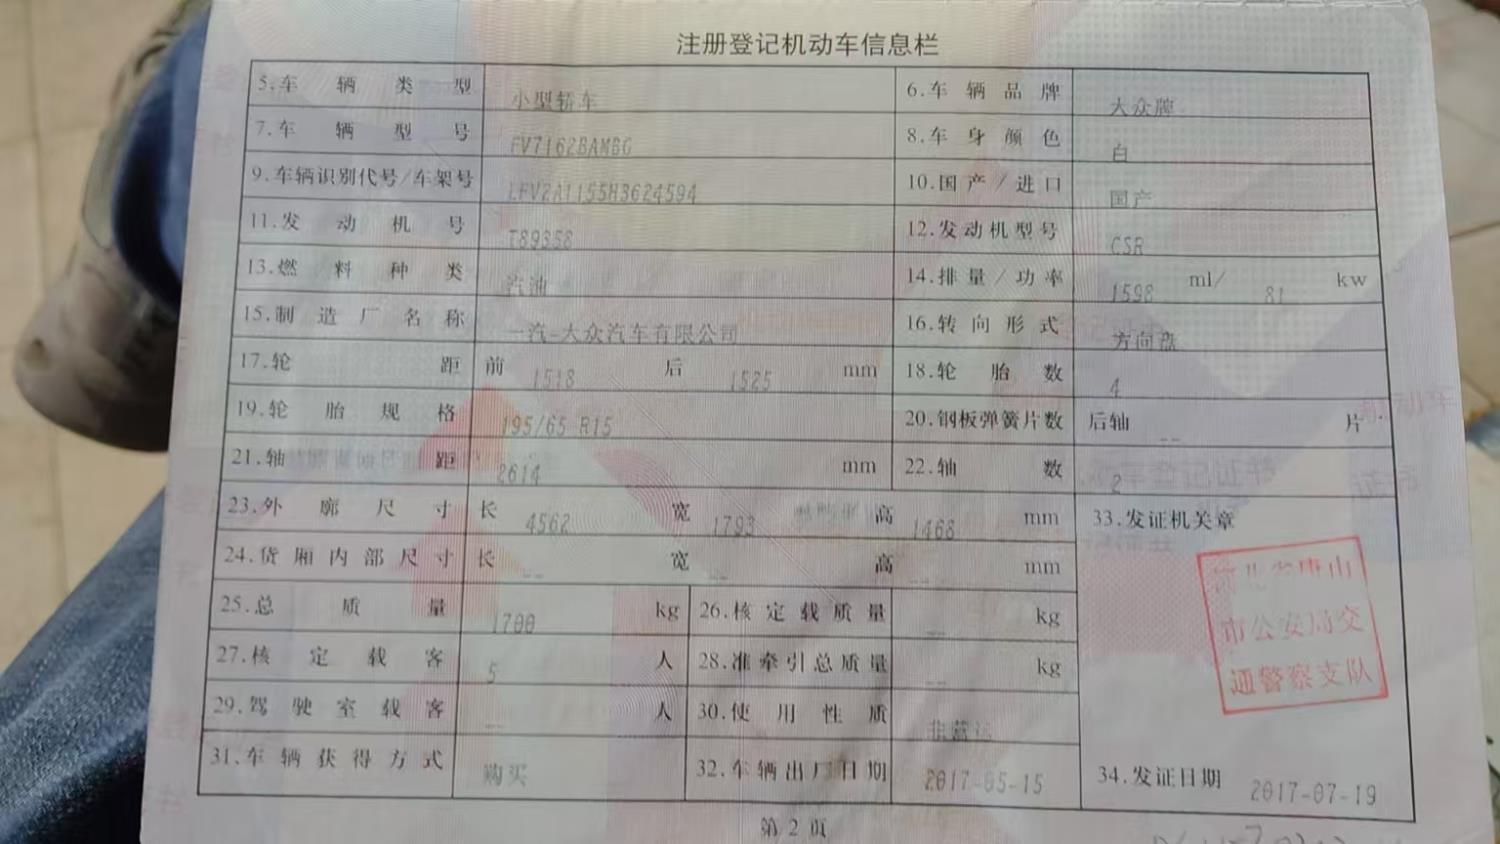 注册登记机动车信息栏
5.车辆类型 小型轿车 6.车辆品牌 大众牌
7.车辆型号 FV7162BAMBG 8.车身颜色 白
9.车辆识别代号/车架号 LFV2A1155H3624594 10.国产/进口 国产
11.发动机号 T89358 12.发动机型号 CSR
13.燃料种类 汽油 14.排量/功率 1598 ml/ 81 kw
15.制造厂名称 一汽-大众汽车有限公司 16.转向形式 方向盘
17.轮距 前 1518 后 1525 mm 18.轮胎数 4
19.轮胎规格 195/65 R15 20.钢板弹簧片数 后轴 -- 片
21.轴距 2614 mm 22.轴数 2
23.外廓尺寸 长 4562 宽 1793 高 1468 mm 33.发证机关章
24.货厢内部尺寸 长 -- 宽 -- 高 -- mm
河北省唐山
市公安局交
通警察支队
25.总质量 1700 kg 26.核定载质量 -- kg
27.核定载客 5 人 28.准牵引总质量 -- kg
29.驾驶室载客 -- 人 30.使用性质 非营运
31.车辆获得方式 购买 32.车辆出厂日期 2017-05-15 34.发证日期 2017-07-19
第 2 页